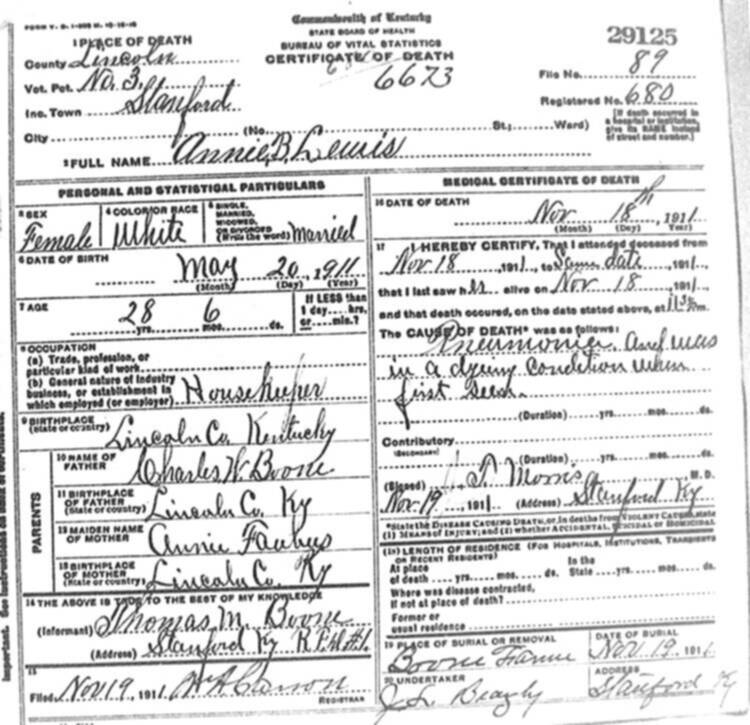 FORM V. S. 1-
Commonwealth of Kentucky
STATE BOARD OF HEALTH
BUREAU OF VITAL STATISTICS
CERTIFICATE OF DEATH
6673
29125
File No. 89
Registered No. 680
[If death occurred in a hospital or institution, give its NAME instead of street and number.]
1 PLACE OF DEATH
County Lincoln
Vot. Pct. No. 3
Inc. Town Stanford
City (No. St.; Ward)
2 FULL NAME Annie B. Lewis
PERSONAL AND STATISTICAL PARTICULARS
3 SEX Female
4 COLOR OR RACE White
5 SINGLE, MARRIED, WIDOWED, OR DIVORCED (Write the word) Married
6 DATE OF BIRTH
May 20, 1911
(Month) (Day) (Year)
7 AGE
28 yrs. 6 mos. ds.
If LESS than 1 day hrs. or min.?
8 OCCUPATION
(a) Trade, profession, or particular kind of work
(b) General nature of industry business, or establishment in which employed (or employer) Housekeeper
9 BIRTHPLACE (State or country) Lincoln Co. Kentucky
PARENTS
10 NAME OF FATHER Charles W. Boone
11 BIRTHPLACE OF FATHER (State or country) Lincoln Co. Ky
12 MAIDEN NAME OF MOTHER Annie
13 BIRTHPLACE OF MOTHER (State or country) Lincoln Co. Ky
14 THE ABOVE IS TRUE TO THE BEST OF MY KNOWLEDGE
(Informant) Thomas M. Boone
(Address) Stanford Ky
15
Filed Nov 19, 1911
REGISTRAR
MEDICAL CERTIFICATE OF DEATH
16 DATE OF DEATH
Nov 18th, 1911
(Month) (Day) (Year)
17 I HEREBY CERTIFY, That I attended deceased from
Nov 18, 1911, to Same date, 191
that I last saw her alive on Nov 18, 191
and that death occured, on the date stated above, at 11 m.
The CAUSE OF DEATH* was as follows:
Pneumonia. And was
in a dying condition when
first seen.
(Duration) yrs. mos. ds.
Contributory
(SECONDARY)
(Duration) yrs. mos. ds.
(Signed) Morris M. D.
Nov. 19, 1911 (Address) Stanford Ky
*State the DISEASE CAUSING DEATH, or, in deaths from VIOLENT CAUSES, state
(1) MEANS OF INJURY; and (2) whether ACCIDENTAL, SUICIDAL or HOMICIDAL
18) LENGTH OF RESIDENCE (FOR HOSPITALS, INSTITUTIONS, TRANSIENTS
OR RECENT RESIDENTS)
At place of death yrs. mos. ds. In the State yrs. mos. ds.
Where was disease contracted,
if not at place of death?
Former or
usual residence
19 PLACE OF BURIAL OR REMOVAL
Boone Farm
DATE OF BURIAL
Nov 19, 1911
20 UNDERTAKER
J. L. Beazly
ADDRESS
Stanford Ky
Important. See instructions on back of certificate.